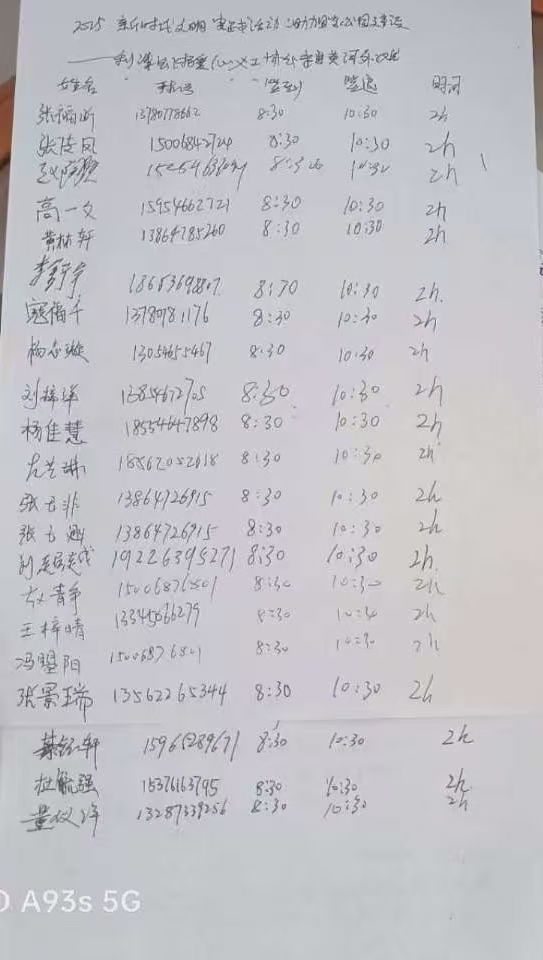 2025 新时代文明实践活动 助力国家公园建设
姓名 手机 签到 签退 时间
张福渐 13780778662 8:30 10:30 2h
张陵凤 15006842724 8:30 10:30 2h
8:30 10:30 2h
高一文 15954662721 8:30 10:30 2h
黄林轩 13864785260 8:30 10:30 2h
8:30 10:30 2h.
寇福千 13780981176 8:30 10:30 2h
杨志璇 13054655467 8:30 10:30 2h
刘梓洋 8:30 10:30 2h
杨佳慧 18554647898 8:30 10:30 2h
18562052618 8:30 10:30 2h
张云非 13864726915 8:30 10:30 2h
张云 13864726915 8:30 10:30 2h
19226395271 8:30 10:30 2h.
青争 15006876801 8:30 10:30 2h
王梓晴 13345066279 8:30 10:30 2h
冯曌阳 15006876801 8:30 10:30 2h
张景瑞 13562265344 8:30 10:30 2h
轩 15965289671 8:30 10:30 2h
杜毓强 15376163795 8:30 10:30 2h
13287339256 8:30 10:30 2h
A93s 5G